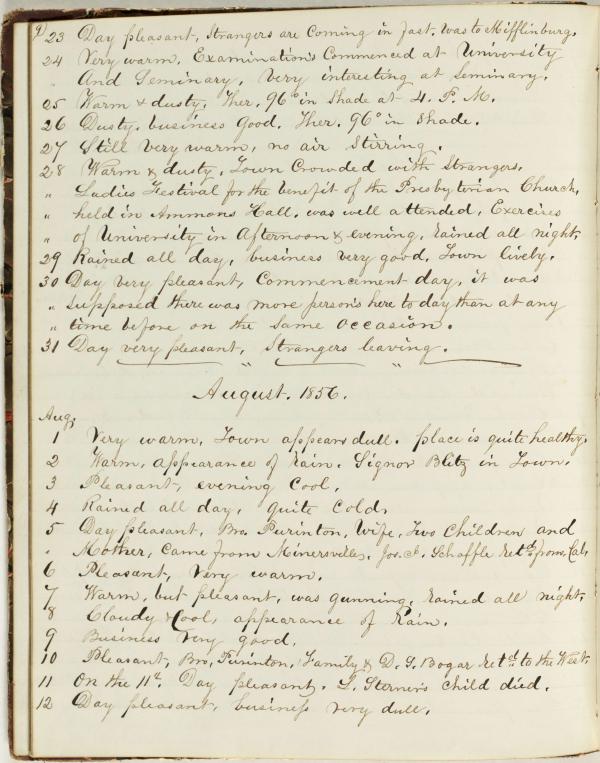 23 Day pleasant, Strangers are Coming in fast. Was to Mifflinburg.
24 Very warm. Examinations Commenced at University
And Seminary, Very interesting at Seminary.
25 Warm & dusty. Ther. 96° in Shade at 4. P. M.
26 Dusty. business good. Ther. 96° in Shade.
27 Still very warm, no air Stirring.
28 Warm & dusty, Town Crowded with Strangers.
" Ladies Festival for the benefit of the Presbyterian Church,
" held in Ammons Hall. was well attended, Exercises
" of University in Afternoon & evening. rained all night.
29 Rained all day, business very good. Town lively.
30 Day very pleasant, Commencement day, it was
" supposed there was more persons here to day than at any
" time before on the Same Occasion.
31 Day very pleasant, Strangers leaving.
" "
August. 1856.
Aug,
1 Very warm, Town appears dull. place is quite healthy.
2 Warm, appearance of rain. Signor Blitz in Town.
3 Pleasant, evening Cool.
4 Rained all day, quite Cold,
5 Day pleasant, Bro. Purinton, Wife, Two Children and
" Mother, Came from Minersville, Schaffle Retd from, Cal,
6 Pleasant, Very warm.
7 Warm, but pleasant, was gunning. Rained all night,
8 Cloudy & Cool, appearance of Rain.
9 Business Very good.
10 Pleasant, Bro, Purinton, Family & D. S. Bogar Retd to the West.
11 On the 11th. Day pleasant. L. Sterner's Child died.
12 Day pleasant, business very dull.